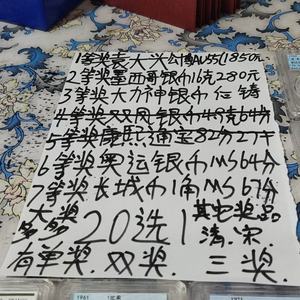 1等奖袁大头公博AU55(1850元
2等奖墨西哥银币16克280元
3等奖大力神银币任铸
4等奖双凤银币49克64分
5等奖康熙通宝82分27千
6等奖奥运银币MS64分
7等奖长城币1角MS67分
大奖
多多
20选1
其它奖品
清.宋.
有单奖.双奖.三奖.
1961